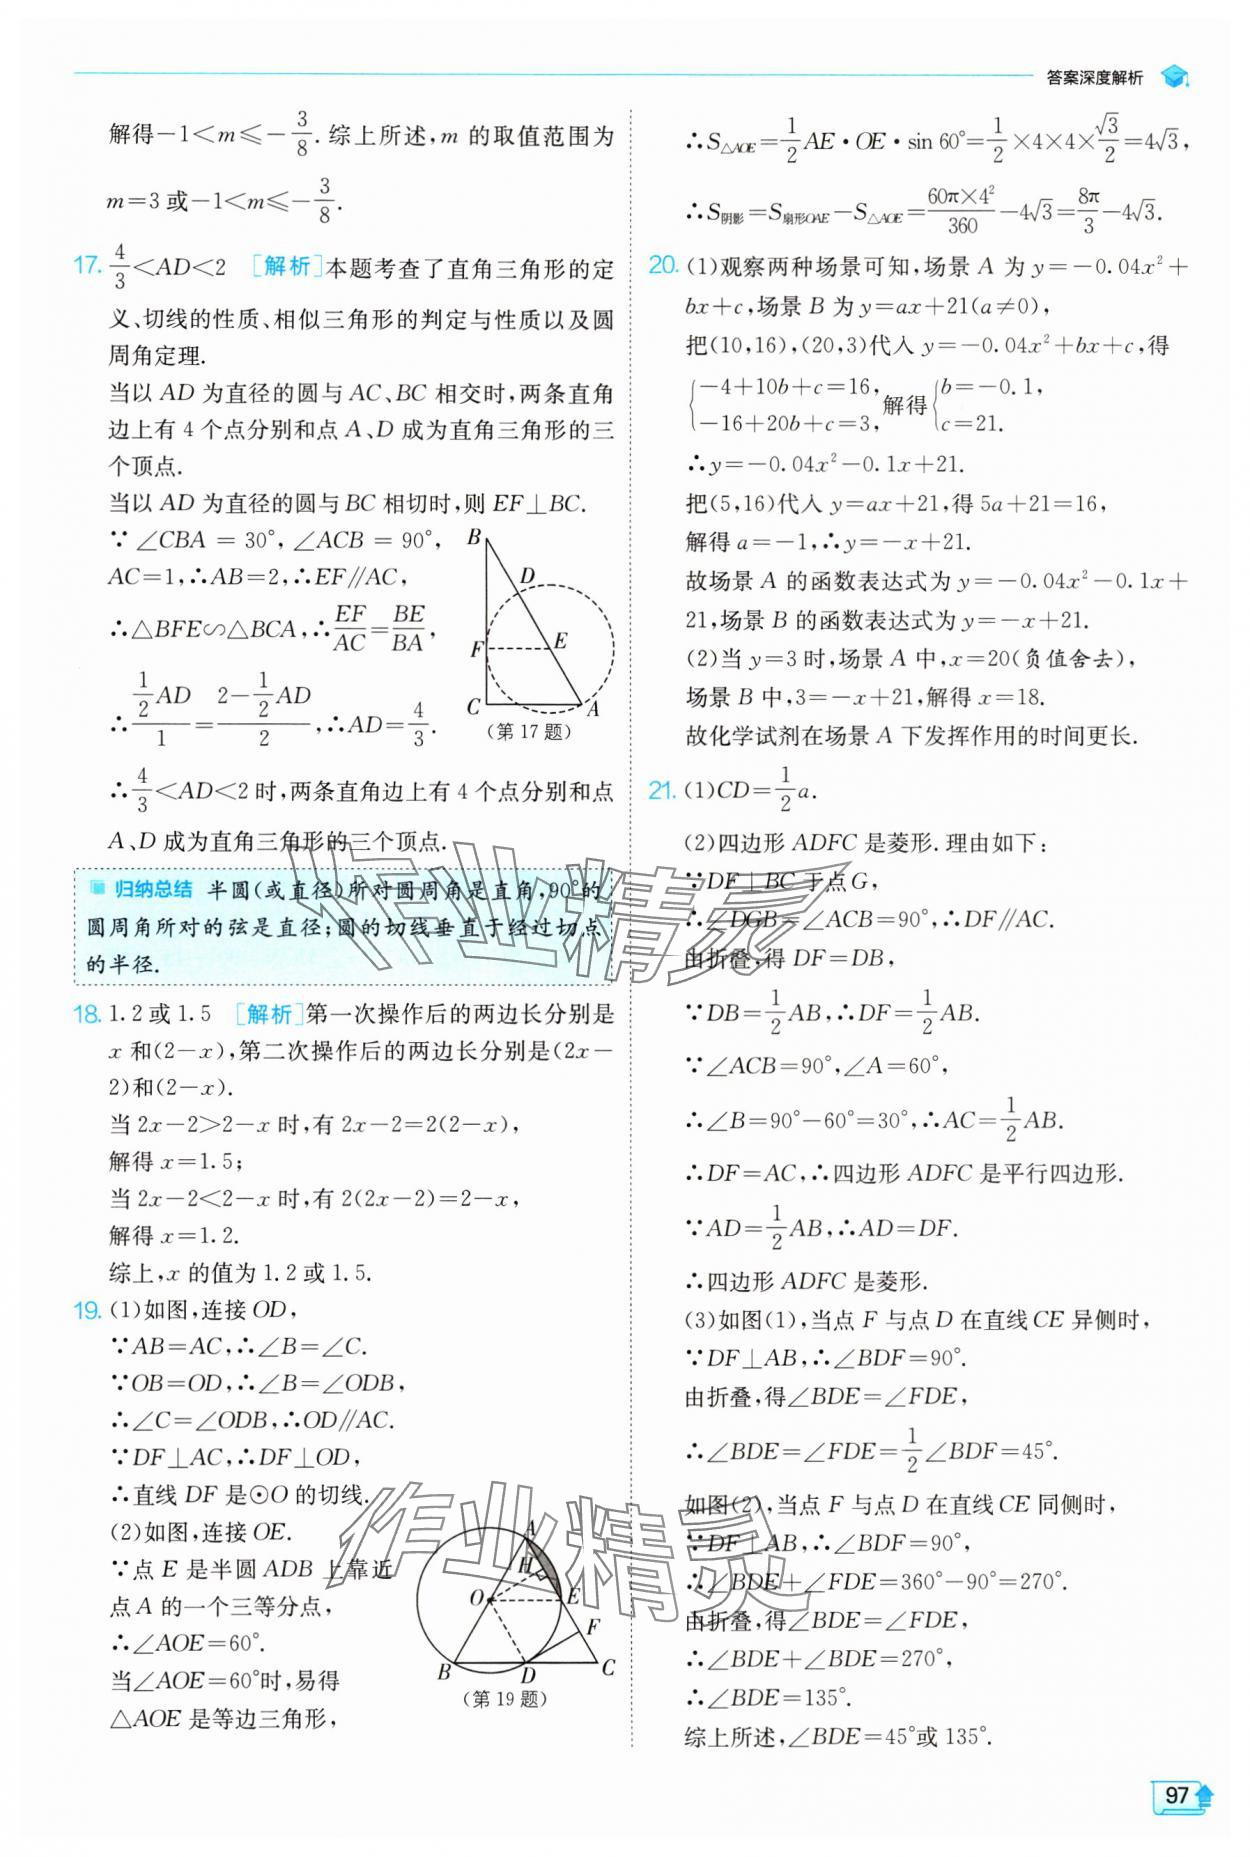 答案深度解析
解得-1<m≤-3/8.综上所述,m 的取值范围为
m=3 或-1<m≤-3/8.
17. 4/3<AD<2 [解析]本题考查了直角三角形的定
义、切线的性质、相似三角形的判定与性质以及圆
周角定理.
当以 AD 为直径的圆与 AC、BC 相交时,两条直角
边上有 4 个点分别和点 A、D 成为直角三角形的三
个顶点.
当以 AD 为直径的圆与 BC 相切时,则 EF⊥BC.
∵∠CBA=30°,∠ACB=90°,
AC=1,∴AB=2,∴EF∥AC,
∴△BFE∽△BCA,∴EF/AC=BE/BA,
∴(1/2 AD)/1=(2-1/2 AD)/2,∴AD=4/3.
B
D
F
E
C
A
(第 17 题)
∴4/3<AD<2 时,两条直角边上有 4 个点分别和点
A、D 成为直角三角形的三个顶点.
归纳总结 半圆(或直径)所对圆周角是直角,90°的
圆周角所对的弦是直径;圆的切线垂直于经过切点
的半径.
18. 1.2 或 1.5 [解析]第一次操作后的两边长分别是
x 和(2-x),第二次操作后的两边长分别是(2x-
2)和(2-x).
当 2x-2>2-x 时,有 2x-2=2(2-x),
解得 x=1.5;
当 2x-2<2-x 时,有 2(2x-2)=2-x,
解得 x=1.2.
综上,x 的值为 1.2 或 1.5.
19. (1)如图,连接 OD,
∵AB=AC,∴∠B=∠C.
∵OB=OD,∴∠B=∠ODB,
∴∠C=∠ODB,∴OD∥AC.
∵DF⊥AC,∴DF⊥OD,
∴直线 DF 是⊙O 的切线.
(2)如图,连接 OE.
∵点 E 是半圆 ADB 上靠近
点 A 的一个三等分点,
∴∠AOE=60°.
当∠AOE=60°时,易得
△AOE 是等边三角形,
A
H
O
E
F
B
D
C
(第 19 题)
∴S△AOE=1/2 AE·OE·sin 60°=1/2×4×4×√3/2=4√3,
∴S阴影=S扇形OAE-S△AOE=60π×4²/360-4√3=8π/3-4√3.
20. (1)观察两种场景可知,场景 A 为 y=-0.04x²+
bx+c,场景 B 为 y=ax+21(a≠0),
把(10,16),(20,3)代入 y=-0.04x²+bx+c,得
{-4+10b+c=16, -16+20b+c=3, 解得{b=-0.1, c=21.
∴y=-0.04x²-0.1x+21.
把(5,16)代入 y=ax+21,得 5a+21=16,
解得 a=-1,∴y=-x+21.
故场景 A 的函数表达式为 y=-0.04x²-0.1x+
21,场景 B 的函数表达式为 y=-x+21.
(2)当 y=3 时,场景 A 中,x=20(负值舍去),
场景 B 中,3=-x+21,解得 x=18.
故化学试剂在场景 A 下发挥作用的时间更长.
21. (1)CD=1/2 a.
(2)四边形 ADFC 是菱形.理由如下:
∵DF⊥BC 于点 G,
∴∠DGB=∠ACB=90°,∴DF∥AC.
由折叠,得 DF=DB,
∵DB=1/2 AB,∴DF=1/2 AB.
∵∠ACB=90°,∠A=60°,
∴∠B=90°-60°=30°,∴AC=1/2 AB.
∴DF=AC,∴四边形 ADFC 是平行四边形.
∵AD=1/2 AB,∴AD=DF.
∴四边形 ADFC 是菱形.
(3)如图(1),当点 F 与点 D 在直线 CE 异侧时,
∵DF⊥AB,∴∠BDF=90°.
由折叠,得∠BDE=∠FDE,
∴∠BDE=∠FDE=1/2∠BDF=45°.
如图(2),当点 F 与点 D 在直线 CE 同侧时,
∵DF⊥AB,∴∠BDF=90°,
∴∠BDE+∠FDE=360°-90°=270°.
由折叠,得∠BDE=∠FDE,
∴∠BDE+∠BDE=270°,
∴∠BDE=135°.
综上所述,∠BDE=45°或 135°.
作业精灵
作业精灵
97